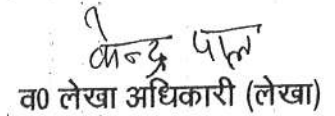 केन्द्र पाल
व0 लेखा अधिकारी (लेखा)